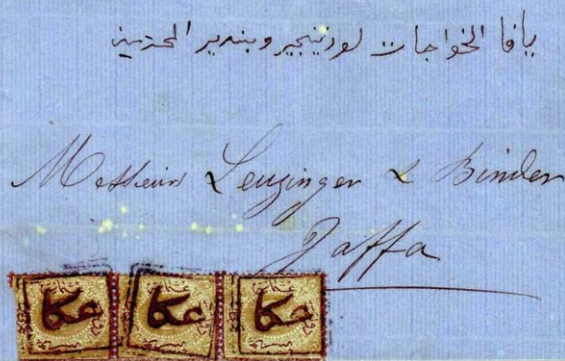 يافا الخواجات لوزينجير وبندير المحترمين
Messieurs Leuzinger & Binder
Jaffa
عكا عكا عكا